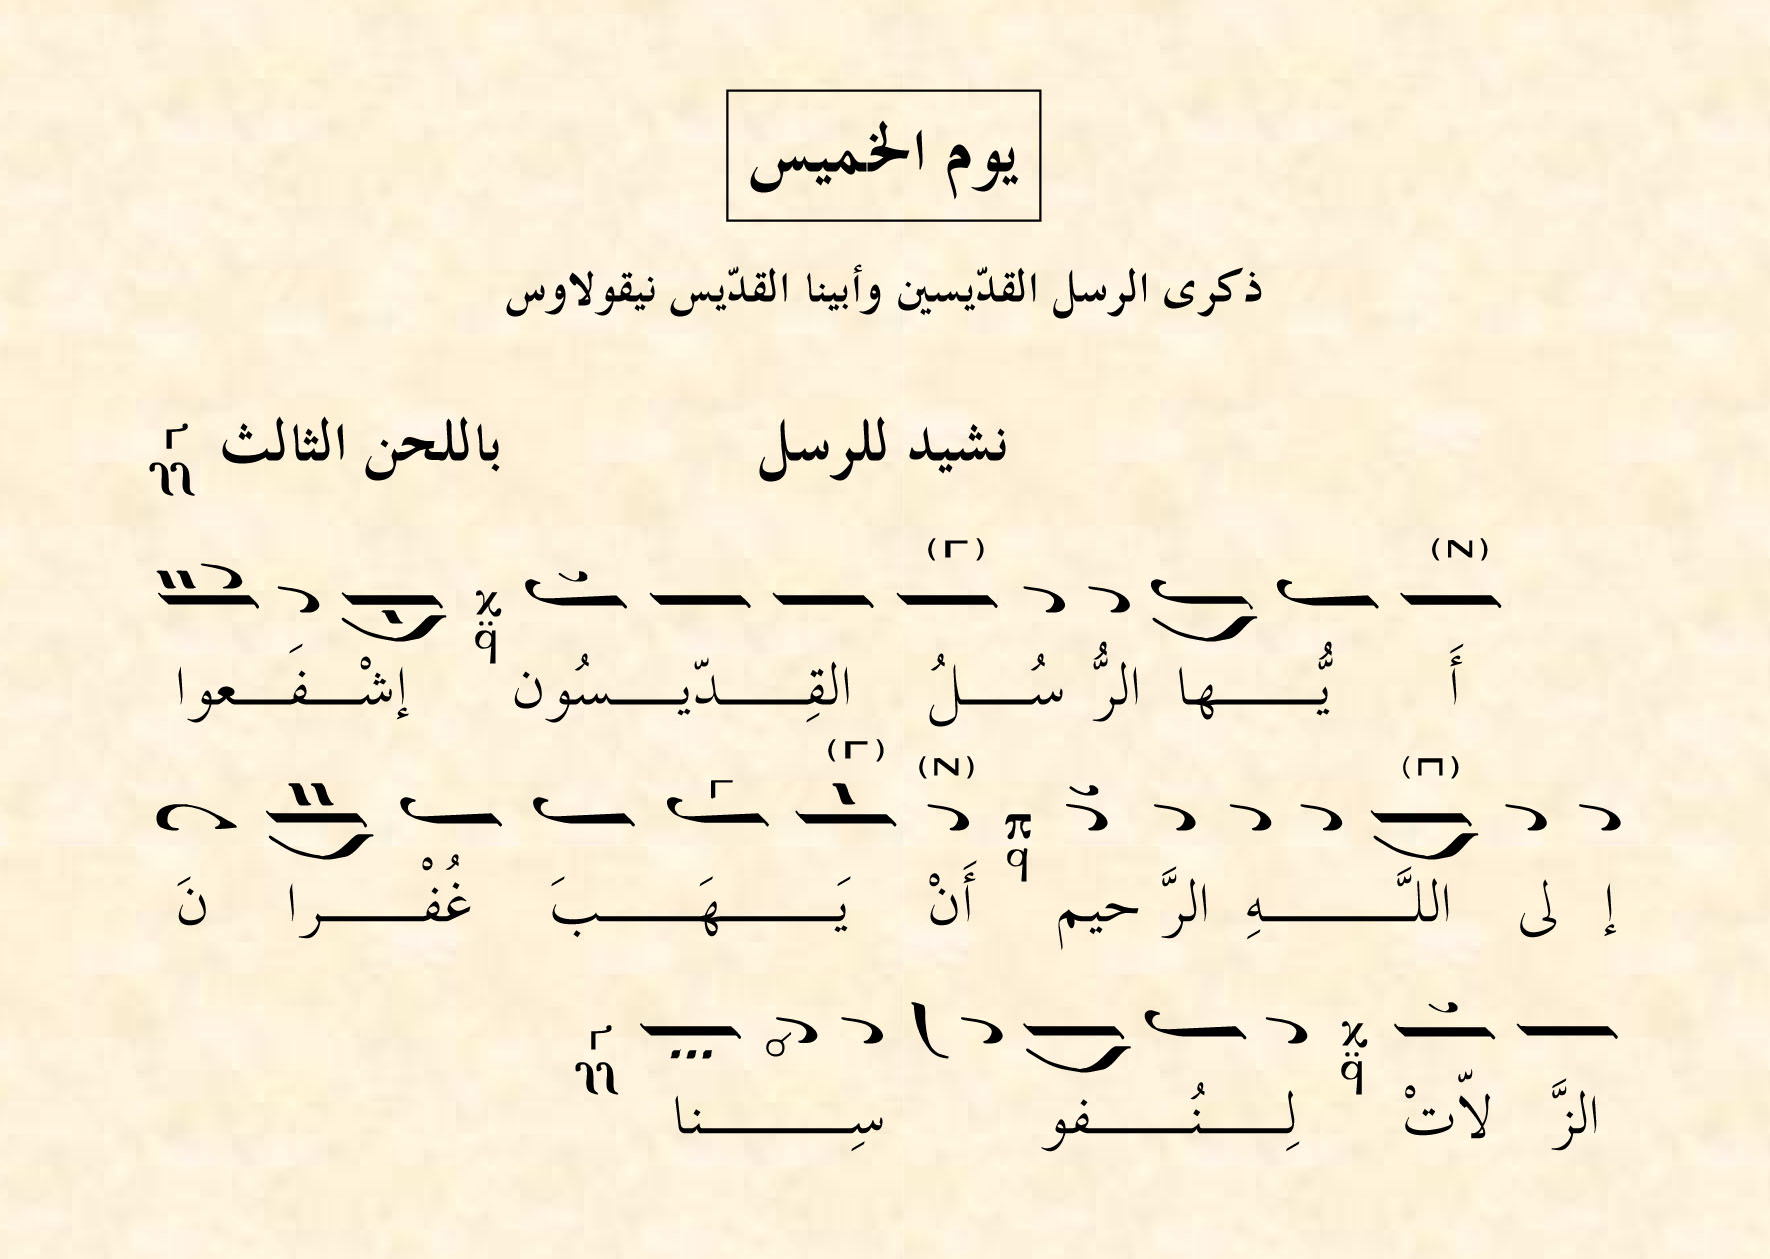 يوم الخميس
ذكرى الرسل القدّيسين وأبينا القدّيس نيقولاوس
نشيد للرسل باللحن الثالث
أَ يُّـــها الرُّ سُـــلُ القِـــدّيـــسُون إشْـــفَـــعوا
إ لى اللَّـــهِ الرَّ حيم أَنْ يَـــهَـــبَ غُفْـــرا نَ
الزَّ لاّتْ لِـــنُـــفو سِـــنا